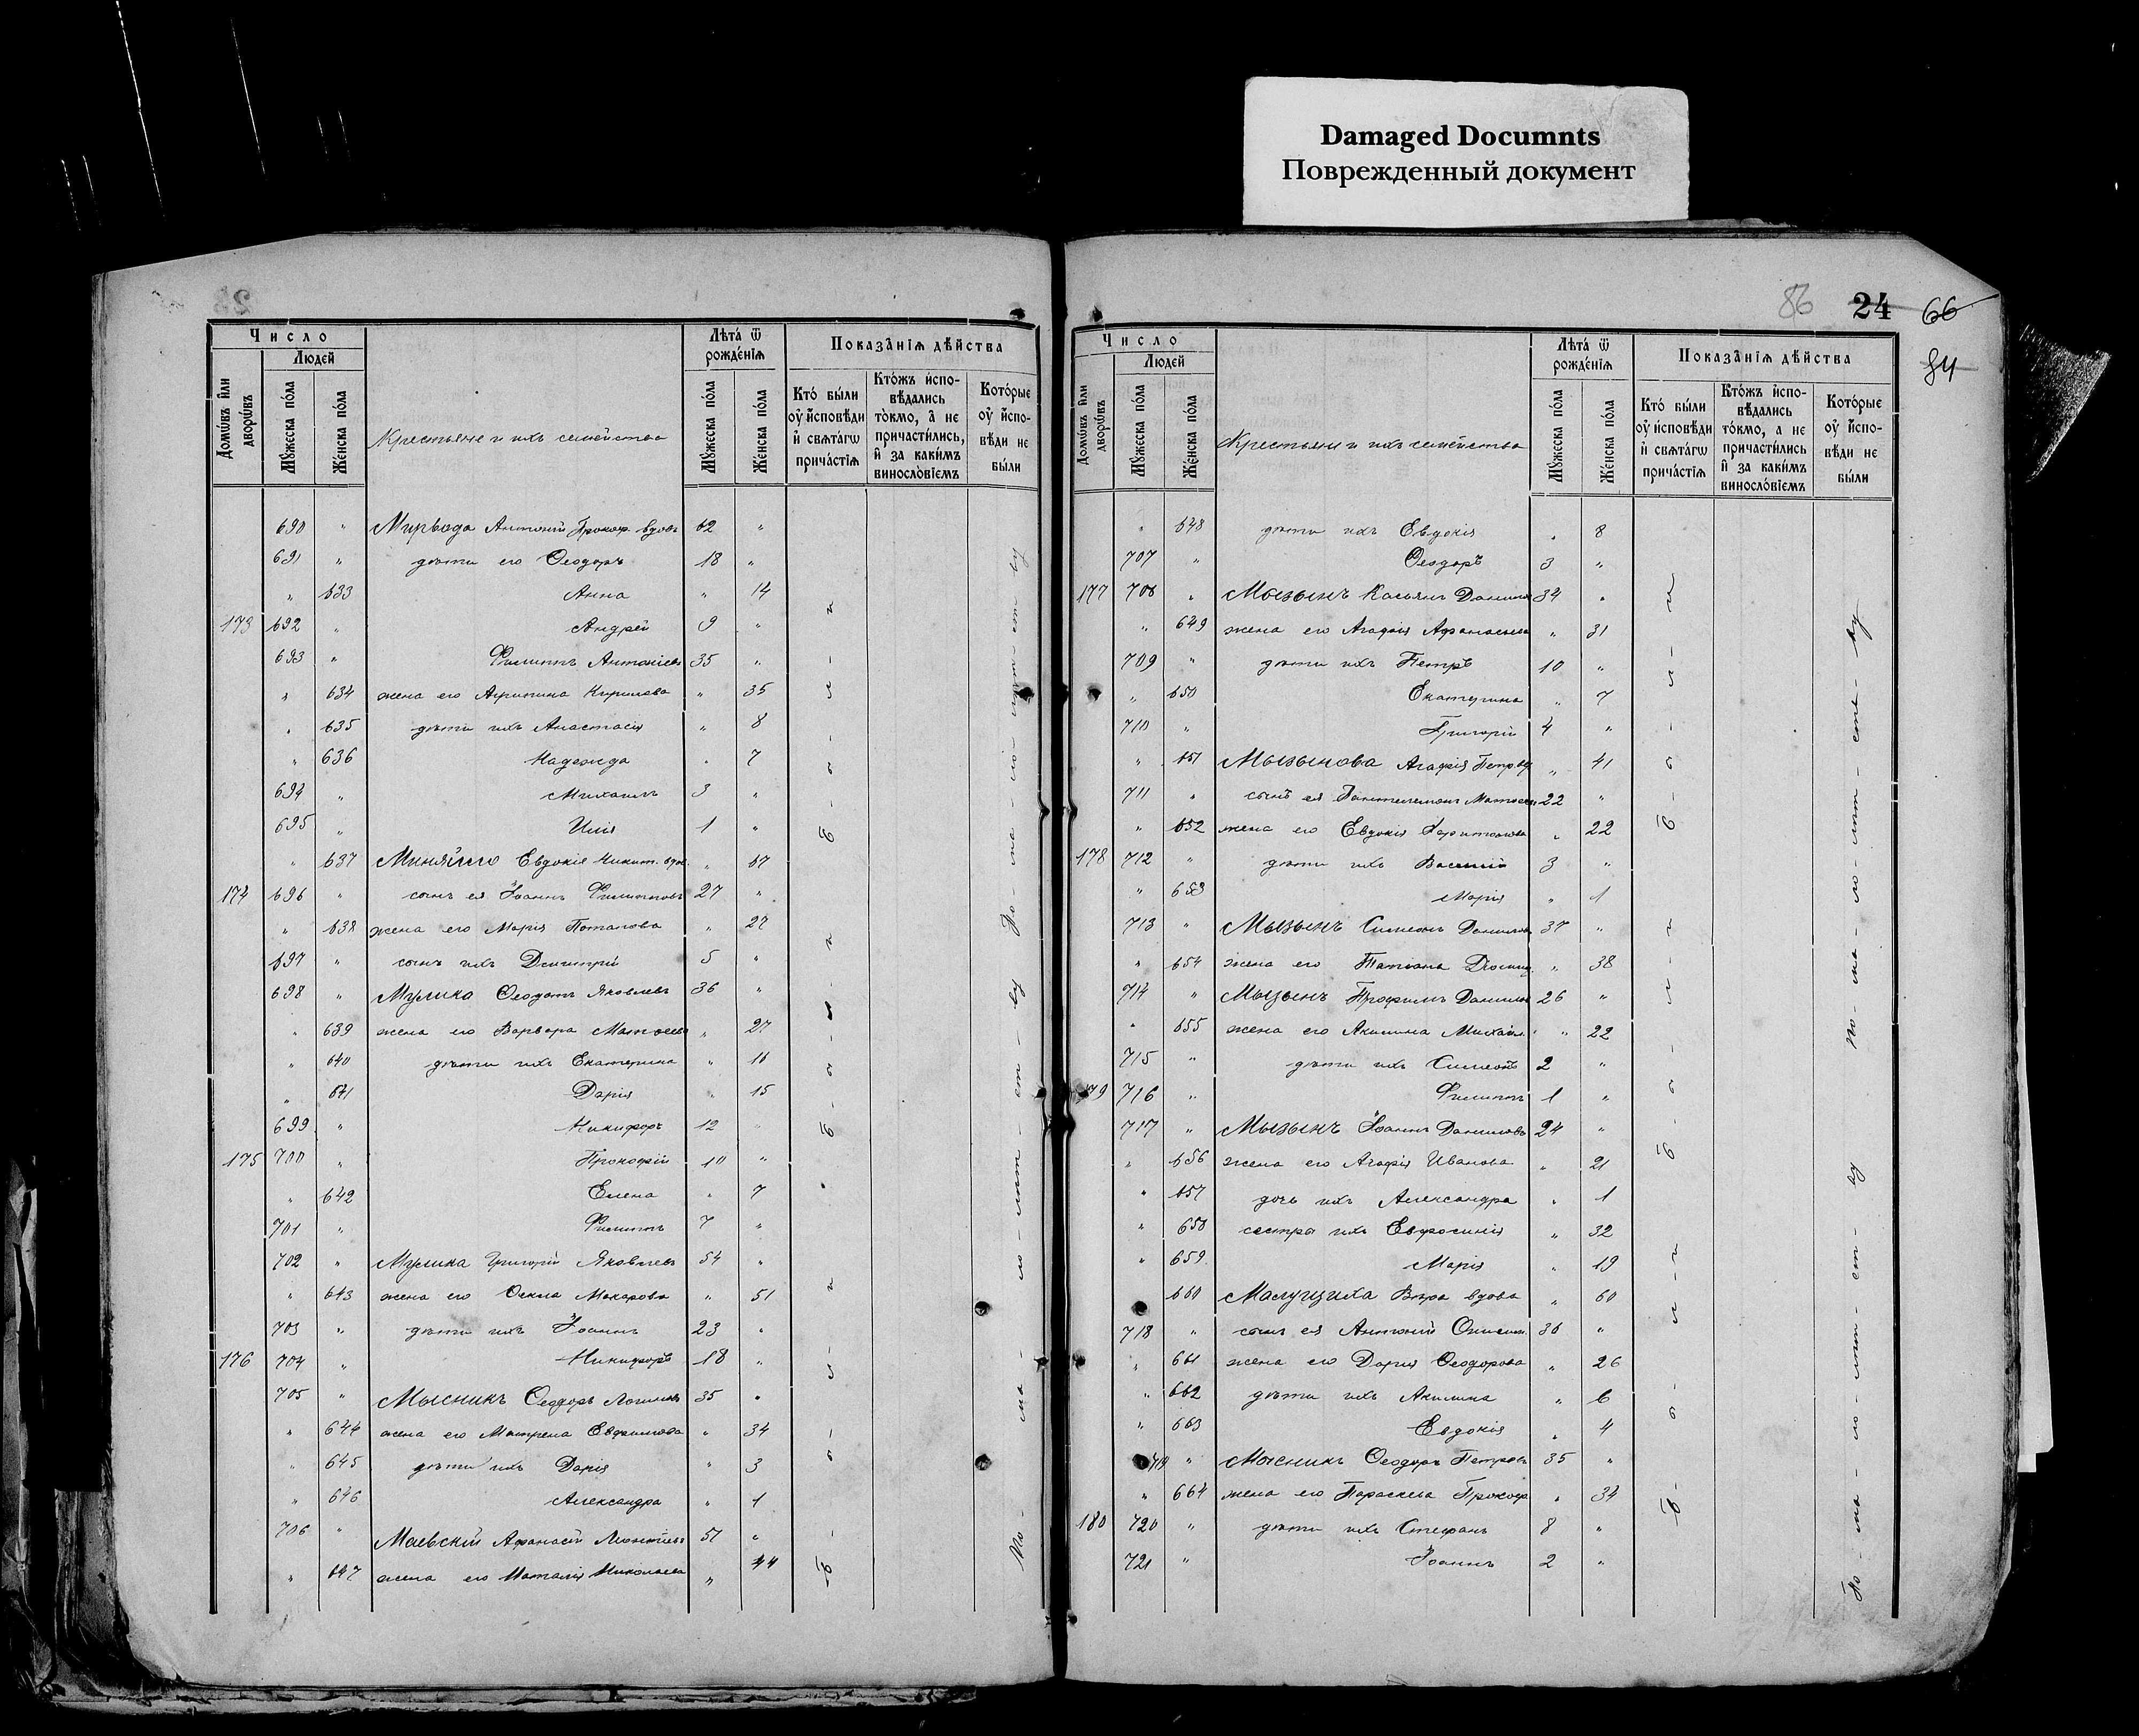 Damaged Documnts
Поврежденный документ
86 24 66
84
Число
Людей
Домѡвъ или дворѡвъ
Мꙋжеска пола
Женска пола
Крестьяне и ихъ семейства
Лѣта ѿ рожденїѧ
Мꙋжеска пола
Женска пола
Показанїѧ дѣйства
Кто были оу исповѣди и свѧтагѡ причастїѧ
Ктожъ исповѣдались токмо, а не причастились, и за какимъ винословїемъ
Которые оу исповѣди не были
690 " Мирвода Антоній Прокоф. вдовъ 62 "
691 " дѣти его Ѳеодоръ 18 "
" 633 Анна " 14
173 692 " Андрей 9 "
693 " Филиппъ Антоніевъ 35 "
" 634 жена его Агрипина Кирилова " 35
" 635 дѣти ихъ Анастасія " 8
" 636 Надежда " 7
694 " Михаилъ 3 "
695 " Илія 1 "
" 637 Миняйло Евдокія Никит. вдов. " 67
174 696 " сынъ ея Іоаннъ Филипповъ 27 "
" 638 жена его Марія Потапова " 27
697 " сынъ ихъ Димитрій 5 "
698 " Мулика Ѳеодотъ Яковлевъ 36 "
" 639 жена его Варвара Матѳеев " 27
" 640 дѣти ихъ Екатерина " 16
" 641 Дарія " 15
699 " Никифоръ 12 "
175 700 " Прокофій 10 "
" 642 Елена " 7
701 " Филиппъ 7 "
702 " Мулика Григорій Яковлевъ 54 "
" 643 жена его Ѳекла Макарова " 51
703 " дѣти ихъ Іоаннъ 23 "
176 704 " Никифоръ 18 "
705 " Мысникъ Ѳеодоръ Логиновъ 35 "
" 644 жена его Матрена Евфимова " 34
" 645 дѣти ихъ Дарія " 3
" 646 Александра " 1
706 " Маевскій Афанасій Леонтіевъ 51 "
" 647 жена его Наталія Николаева " 44
Число
Людей
Домѡвъ или дворѡвъ
Мꙋжеска пола
Женска пола
Крестьяне и ихъ семейства
Лѣта ѿ рожденїѧ
Мꙋжеска пола
Женска пола
Показанїѧ дѣйства
Кто были оу исповѣди и свѧтагѡ причастїѧ
Ктожъ исповѣдались токмо, а не причастились и за какимъ винословїемъ
Которые оу исповѣди не были
" 648 дѣти ихъ Евдокія " 8
707 " Ѳеодоръ 3 "
177 708 " Мызынъ Касьянъ Данилов 34 "
" 649 жена его Агафія Афанасьева " 31
709 " дѣти ихъ Петръ 10 "
" 650 Екатерина " 7
710 " Григорій 4 "
" 651 Мызынова Агафія Петр. вд " 41
711 " сынъ ея Пантелеимонъ Матѳеев 22 "
" 652 жена его Евдокія Харитонова " 22
178 712 " дѣти ихъ Василій 3 "
" 653 Марія " 1
713 " Мызынъ Симеонъ Данилов 37 "
" 654 жена его Татіана Диомид. " 38
714 " Мызынъ Трофимъ Данилов 26 "
" 655 жена его Акилина Михаил. " 22
715 " дѣти ихъ Симеонъ 2 "
179 716 " Филиппъ 1 "
717 " Мызынъ Іоаннъ Даниловъ 24 "
" 656 жена его Агафія Иванова " 21
" 657 дочь ихъ Александра " 1
" 658 сестры ихъ Евфросинія " 32
" 659 Марія " 19
" 660 Вѣра вдова " 60
718 " сынъ ея Антоній Онисим. 36 "
" 661 жена его Дарія Ѳеодорова " 26
" 662 дѣти ихъ Акилина " 6
" 663 Евдокія " 4
719 " Мысникъ Ѳеодоръ Петровъ 35 "
" 664 жена его Параскева Прокоф " 34
180 720 " дѣти ихъ Стефанъ 8 "
721 " Іоаннъ 2 "